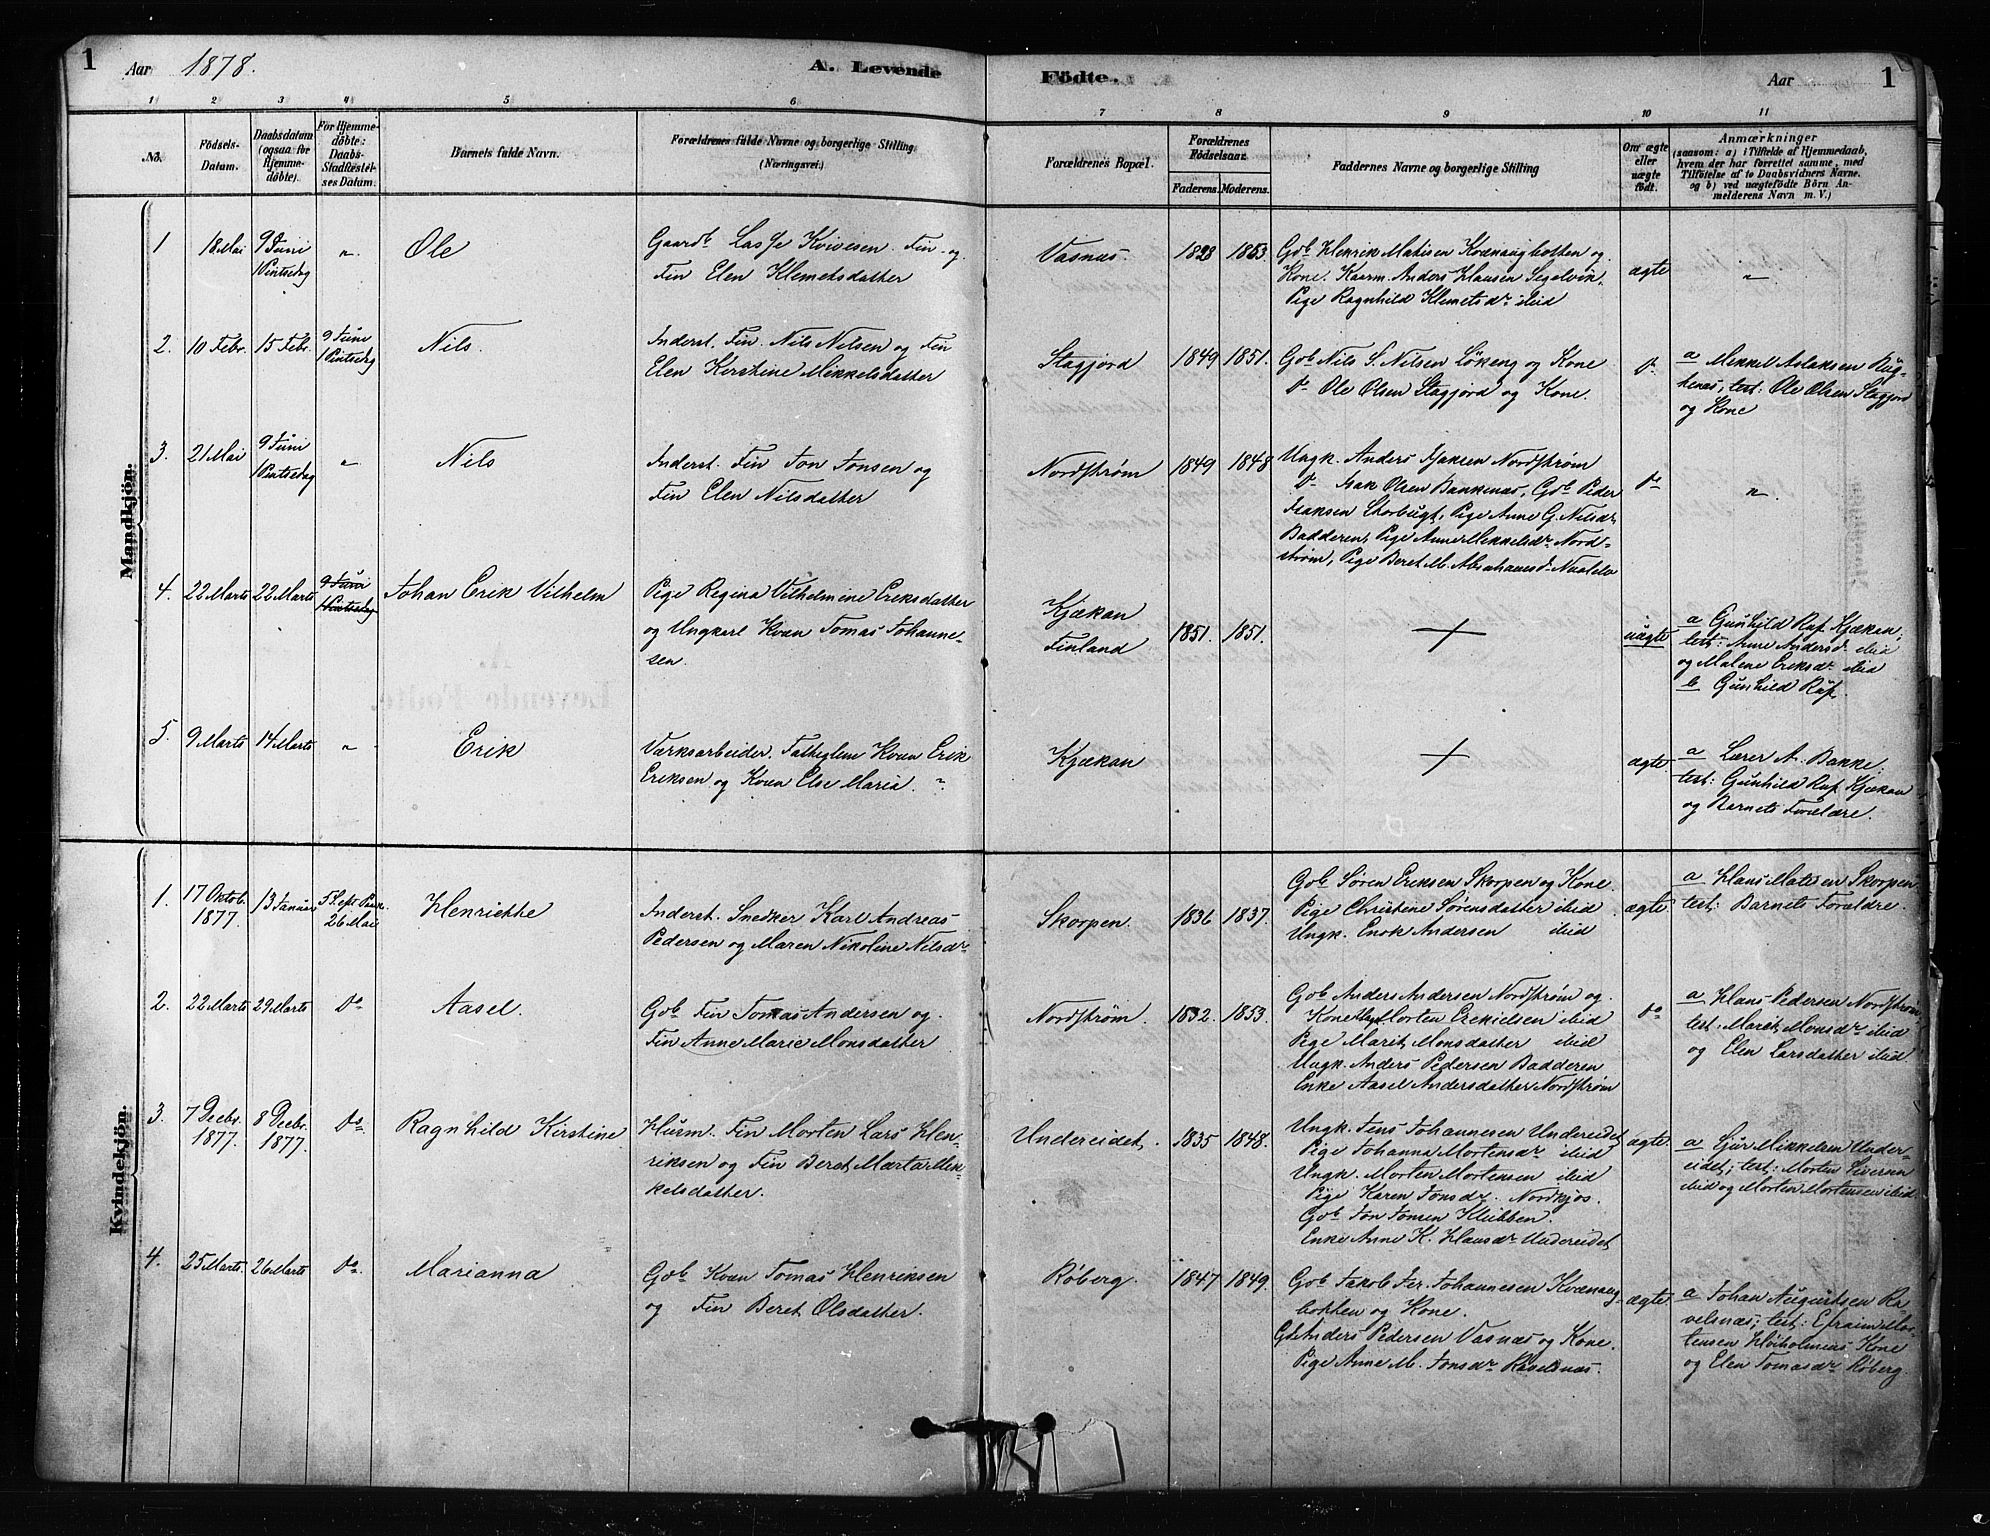 1
Aar 1878.
A. Levende
Födte.
Aar
1
1 2 3 4 5 6 7 8 9 10 11
No.
Födsels-
Datum.
Daabsdatum
(ogsaa for
Hjemme-
döbte).
For Hjemme-
döbte:
Daabs-
Stadfæstel-
ses Datum.
Barnets fulde Navn.
Forældrenes fulde Navne og borgerlige Stilling
(Næringsvei).
Forældrenes Bopæl.
Forældrenes
Födselsaar.
Faderens. Moderens.
Faddernes Navne og borgerlige Stilling
Om ægte
eller
uægte
födt.
Anmærkninger
(saasom: a) i Tilfælde af Hjemmedaab,
hvem der har forrettet samme, med
Tilföielse af to Daabsvidners Navne.
og b) ved uægtefödte Börn An-
melderens Navn m. V.)
Mandkjön.
1
18 Mai
9 Juni
1 Pintsedag
"
Ole
Gaardb Lasse Kvivesen Fin og
Fin Elen Klemetsdatter
Vasnæs
1828
1853
Gdb Henrik Matisen Kvænangbotten og
Kone. Kaarm. Anders Hansen Segelvik,
Pige Ragnhild Klemetsdr ibid
ægte
"
2.
10 Febr.
15 Febr.
9 Juni
1 Pintsedag
Nils.
Inderst. Fin. Nils Nilsen og Fin
Elen Kirstine Mikkelsdatter
Stagjord
1849
1851.
Gdb Nils S. Nilsen Sökeng og Kone
do Ole Olsen Stagjord og Kone.
do
a Mikkel Aslaksen Rüg-
henæs, test: Ole Olsen Stagjord
og Kone
3.
21 Mai
9 Juni
1 Pintsedag
"
Nils
Inderst. Fin Jon Jonsen og
Fin Elen Nilsdatter
Nordstrøm
1849
1848
Ungk. Anders Isaksen Nordstrøm
do Isak Olsen Bankenæs, Gdb Peder
Isaksen Storbugt, Pige Anne G. Nilsdr
Badderen, Pige Anne Mikkelsdr Nord=
strøm, Pige Beret M. Abrahamsdr
do
"
4.
22 Marts
22 Marts
9 Juni
1 Pintsedag
Johan Erik Vilhelm
Pige Regina Vilhelmine Eriksdatter
og Ungkarl Kvæn Tomas Johanne-
sen.
Kjækan
Finland
1851.
1851.
uægte
a Gunhild Raf Kjækan;
test: Anne Andersdr ibid
og Malene Eriksdr ibid
b Gunhild Raf.
5.
9 Marts
14 Marts
"
Erik
Værksarbeider, Kvæn Erik
Eriksen og Kvæn Else Maria. "
Kjækan
ægte
a Lærer A. Bakke.
test: Gunhild Raf Kjækan
og Barnets Forældre.
Kvindekjön.
1.
17 Oktob.
1877.
13 Januar
26 Mai
Henriette
Inderst. Snedker Karl Andreas
Pedersen og Maren Nikoline Nilsdr
Skorpen.
1836
1837.
Gdb Søren Eriksen Skorpen og Kone.
Pige Christine Sørensdatter ibid
Ungk. Enok Andersen ibid
ægte
a Hans Matisen Skorpen
test: Barnets Forældre.
2.
22 Marts
29 Marts
do
Aasel.
Gdb Fin Tomas Andersen og
Fin Anne Marie Monsdatter
Nordstrøm.
1832.
1853.
Gdb Anders Andersen Nordstrøm og
Kone, Morten Ezekielsen ibid
Pige Marit Monsdatter ibid
Ungk. Anders Pedersen Badderen
Enke Aasel Andersdatter Nordstrøm
do
a Hans Pedersen Nordstrøm
test. Marit Monsdr ibid
og Elen Larsdatter ibid
3.
7 Decbr.
1877.
8 Decbr.
1877.
do
Ragnhild Kirstine
Husm. Fin Morten Lars Hen-
riksen og Fin Beret Marta Mik-
kelsdatter.
Undereidet.
1835
1848.
Ungk. Jens Johannesen Undereidet
Pige Johanna Mortensdr ibid
Ungk. Morten Mortensen ibid
Pige Karen Jonsdr Nordkjos.
Gdb Jon Jonsen Klubben.
Enke Anne K. Hansdr Undereidet
ægte.
a Sjur Mikkelsen Under-
eidet; test: Morten Siversen
ibid og Morten Mortensen ibid
4.
25 Marts.
26 Marts
do
Marianna
Gdb Kvæn Tomas Henriksen
og Fin Beret Olsdatter.
Røberg.
1847
1849.
Gdb Jakob Jer. Johannesen Kvænang-
botten og Kone.
Gdb Anders Pedersen Vasnæs og Kone.
Pige Anne M. Jonsdr Ravelsnæs.
ægte
a Johan Augurtsen Ra-
velsnæs; test: Efraim Mor-
tensen Høiholmens Kone
og Elen Tomasdr Røberg.